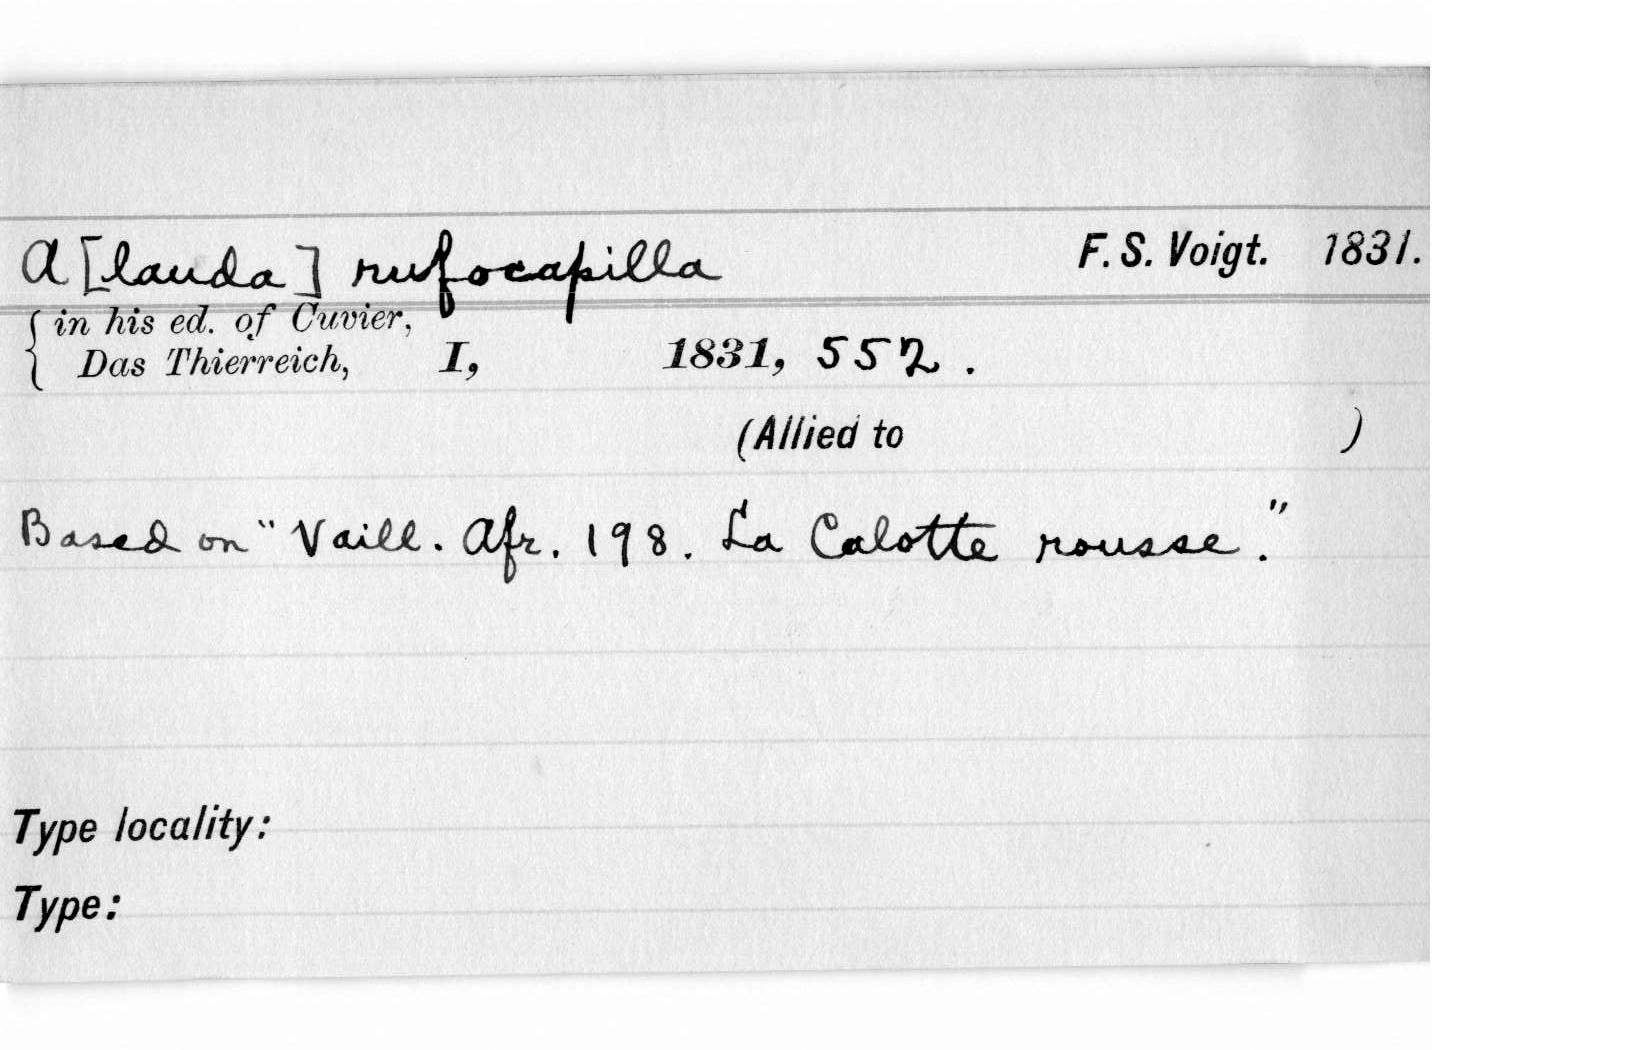 A[lauda] rufocapilla F. S. Voigt. 1831.
{ in his ed. of Cuvier,
Das Thierreich, I, 1831, 552.
(Allied to )
Based on "Vaill. Afr. 198. La Calotte rousse."
Type locality:
Type: